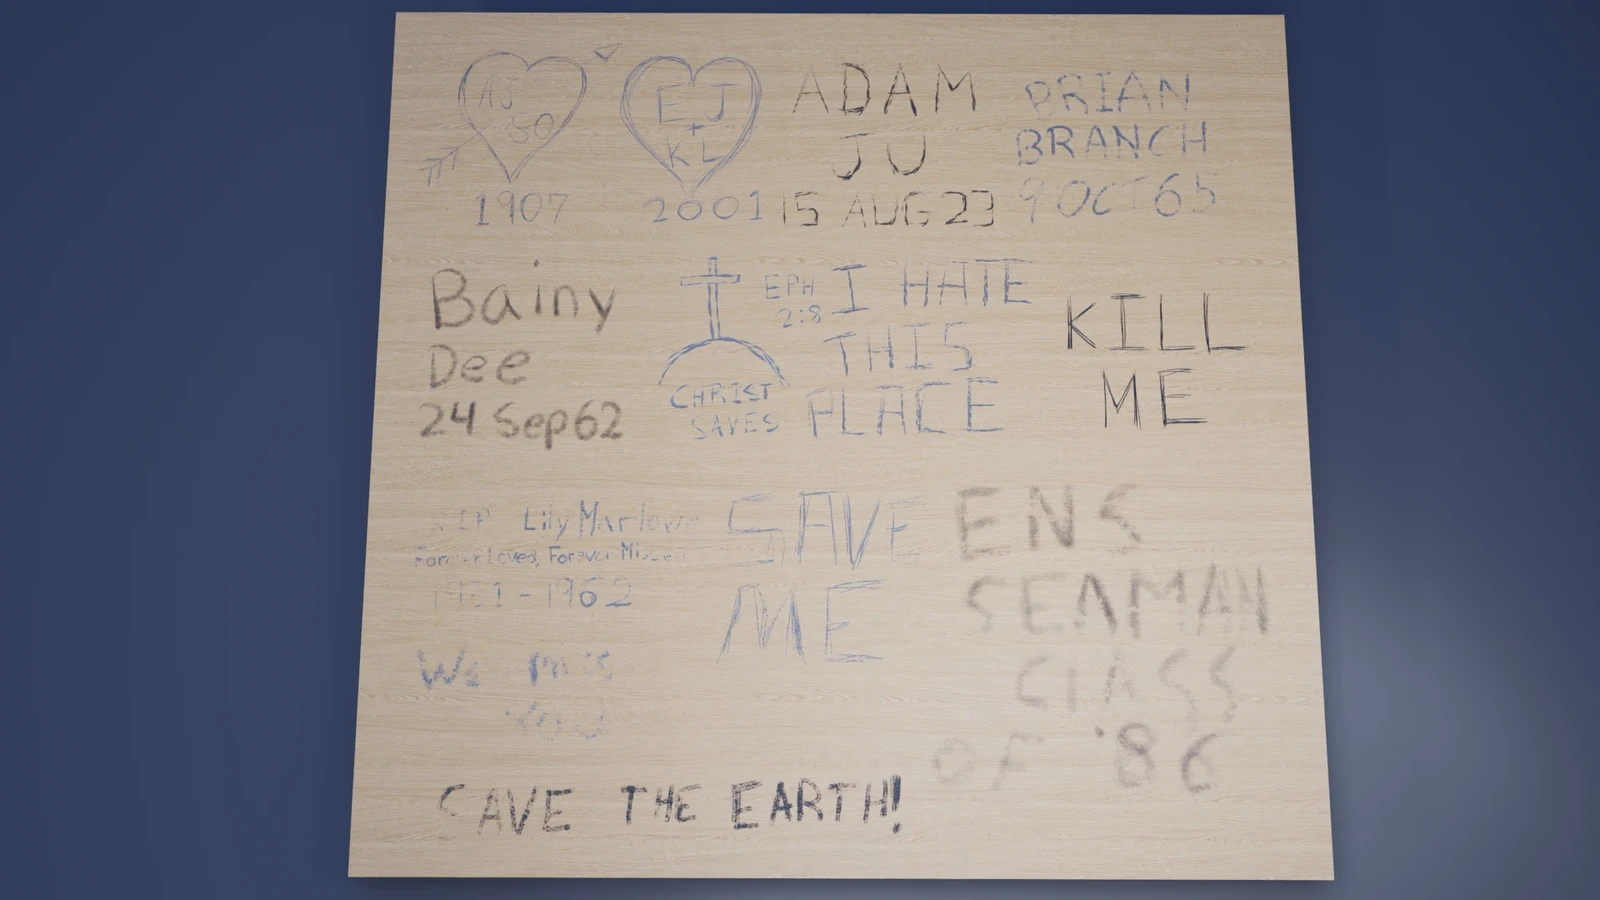 AJ
SO
1907
EJ
+
KL
2001
ADAM
JU
15 AUG 23
BRIAN
BRANCH
9 OCT 65
Bainy
Dee
24 Sep 62
EPH
2:8
CHRIST
SAVES
I HATE
THIS
PLACE
KILL
ME
RIP Lily Marlowe
Forever Loved, Forever Missed
1962
We miss
YOU
SAVE
ME
ENS
SEAMAN
CLASS
OF '86
SAVE THE EARTH!